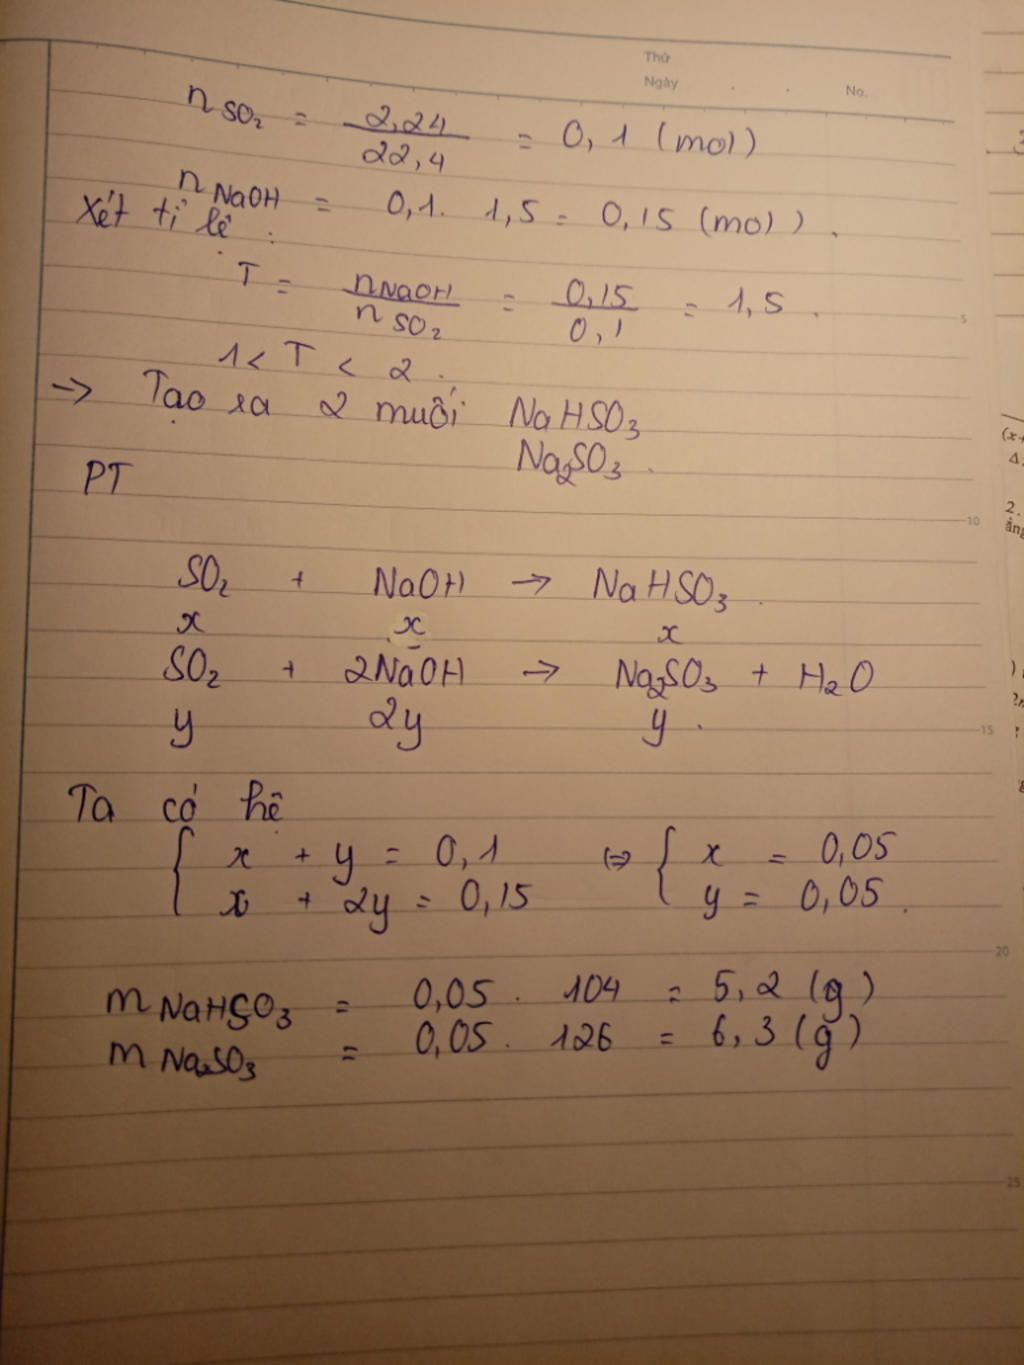 Thứ
Ngày . . No.
n SO₂ = 2,24 / 22,4 = 0,1 (mol)
n NaOH = 0,1. 1,5 = 0,15 (mol).
Xét tỉ lệ :
T = nNaOH / nSO₂ = 0,15 / 0,1 = 1,5.
1 < T < 2.
→ Tạo ra 2 muối NaHSO₃
Na₂SO₃.
PT
SO₂ + NaOH → NaHSO₃.
x x x
SO₂ + 2NaOH → Na₂SO₃ + H₂O
y 2y y.
Ta có hệ
{ x + y = 0,1 ⇔ { x = 0,05
x + 2y = 0,15 y = 0,05.
m NaHSO₃ = 0,05 . 104 = 5,2 (g)
m Na₂SO₃ = 0,05 . 126 = 6,3 (g)
5
10
15
20
25
(x+
2.